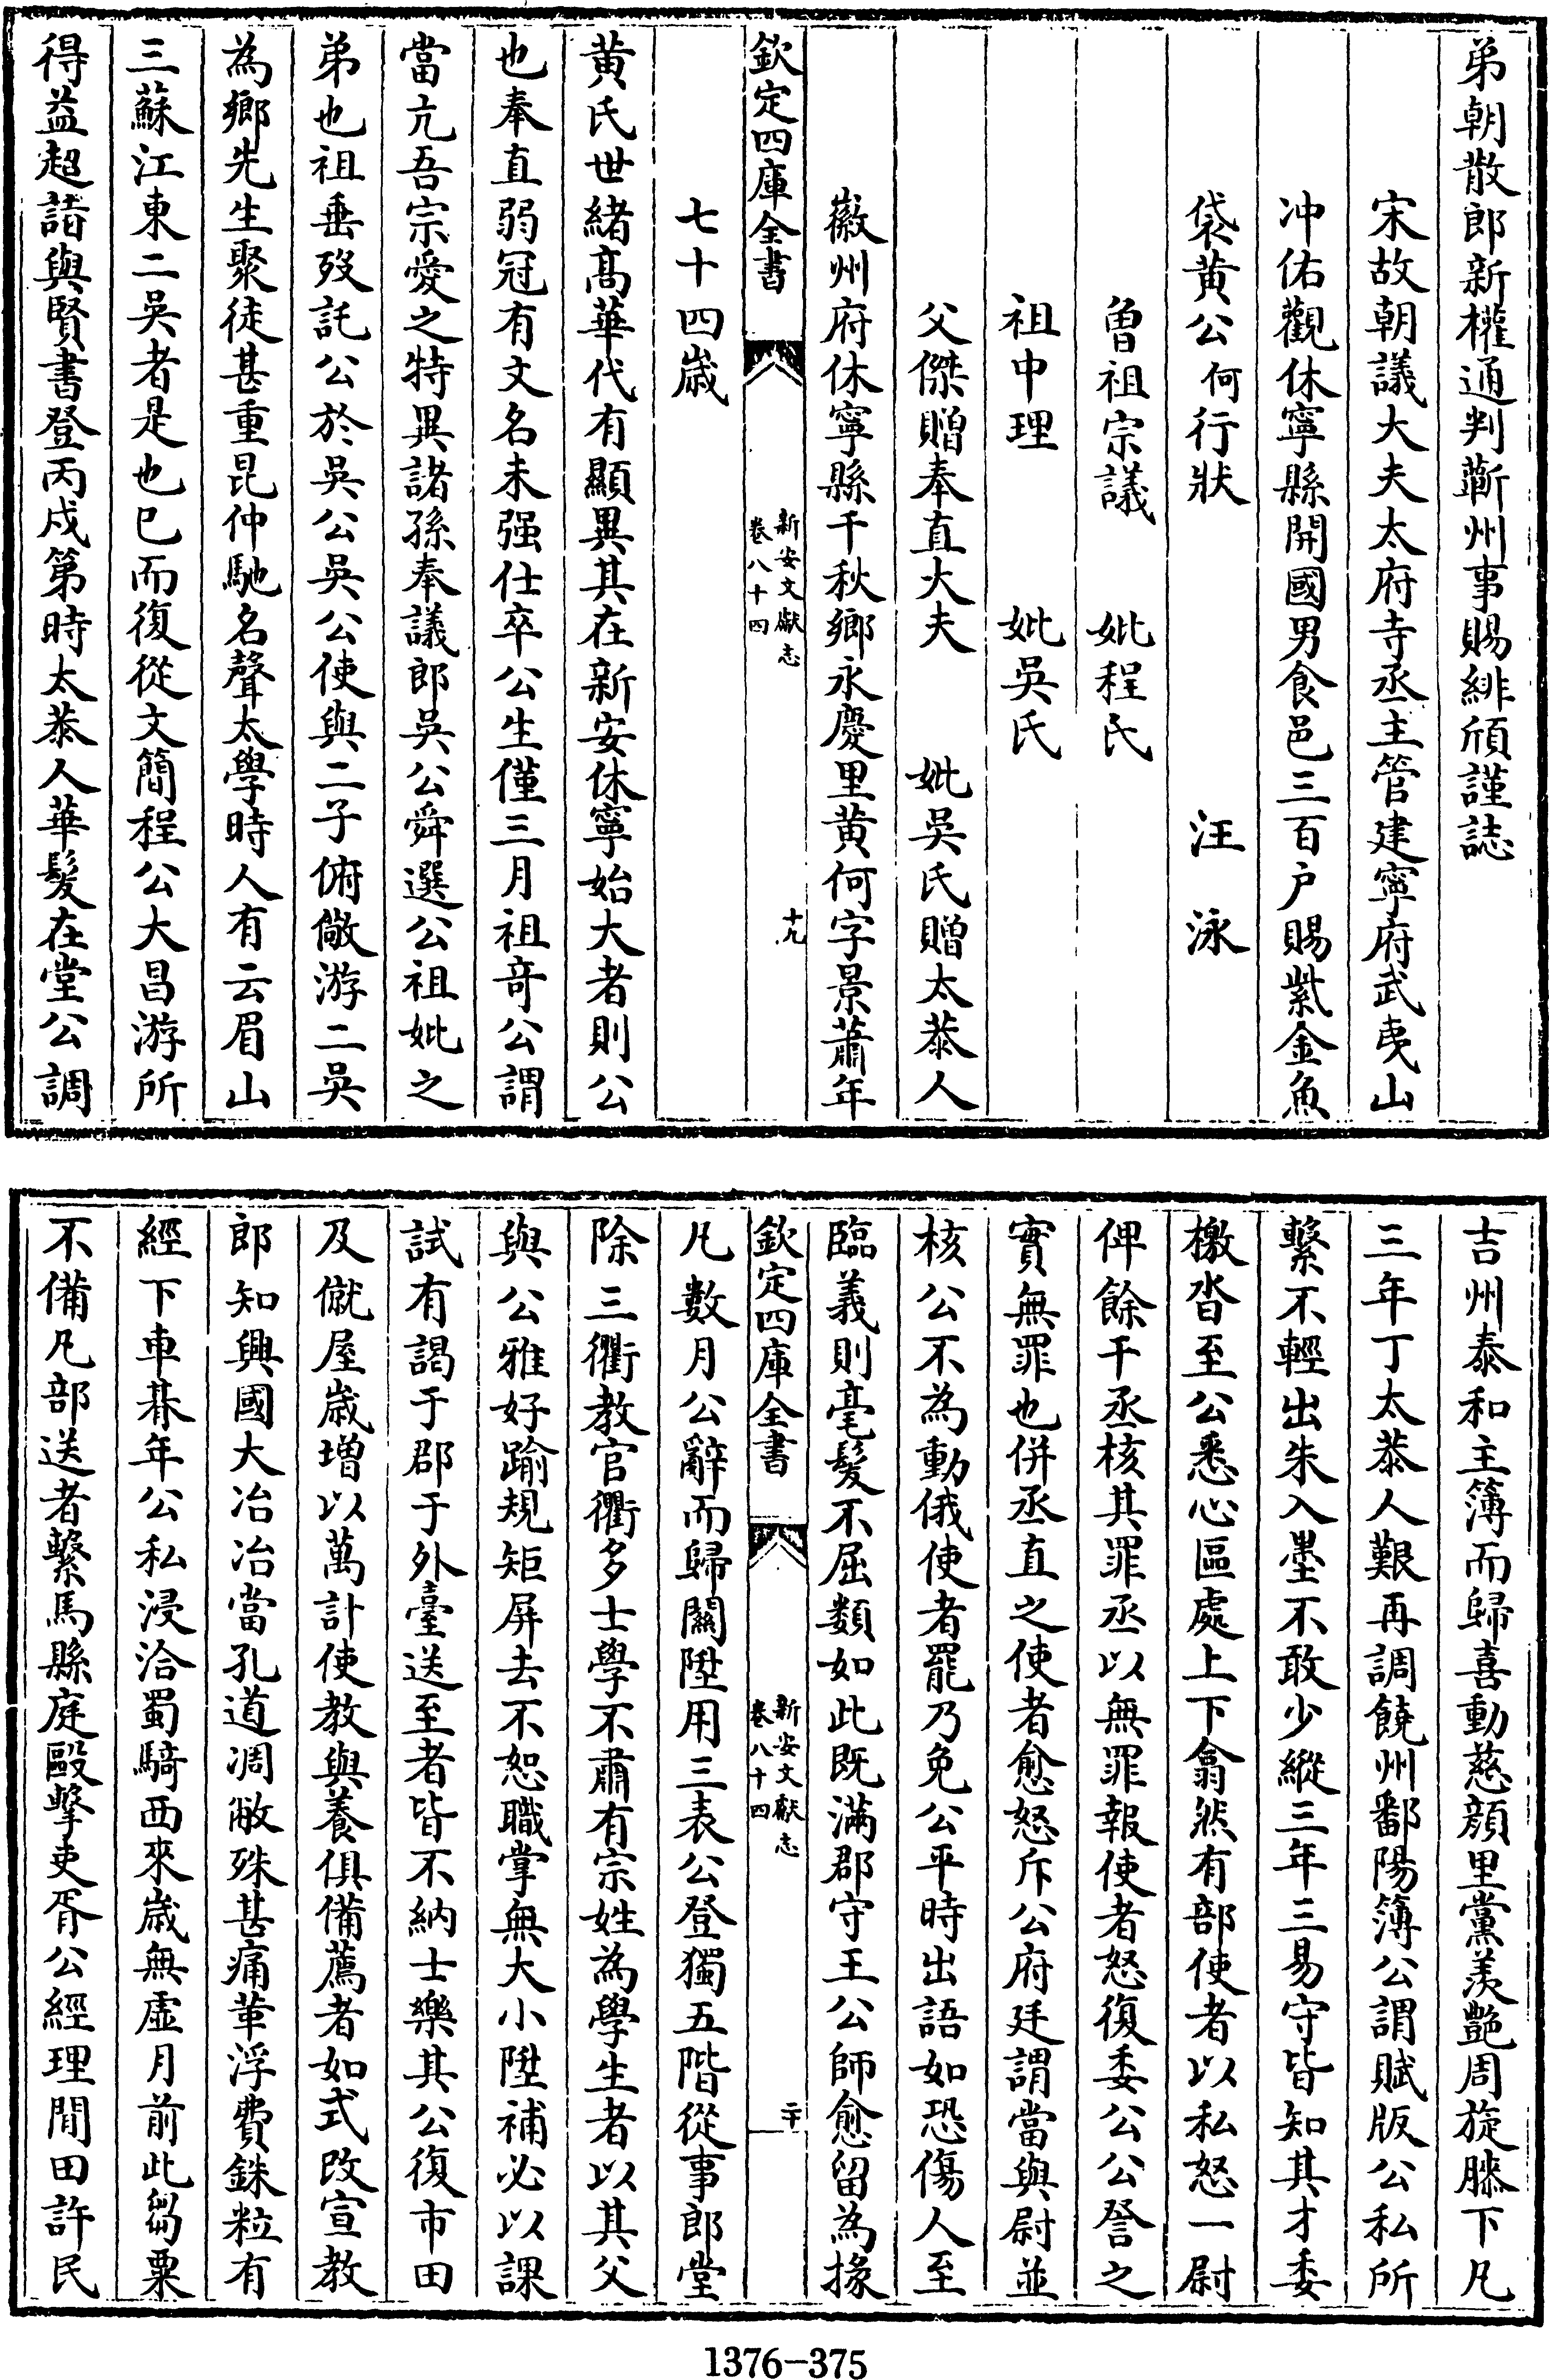 弟朝散郎新權通判蘄州事賜緋頎謹誌
宋故朝議大夫太府寺丞主管建寧府武夷山
冲佑觀休寧縣開國男食邑三百户賜紫金魚
袋黄公何行狀　汪泳
曾祖宗議　妣程氏
祖中理　妣吳氏
父傑贈奉直大夫　妣吳氏贈太恭人
徽州府休寧縣千秋鄉永慶里黄何字景蕭年
欽定四庫全書　新安文獻志卷八十四　十九
七十四歲
黄氏世緒髙華代有顯異其在新安休寧始大者則公
也奉直弱冠有文名未强仕卒公生僅三月祖竒公謂
當亢吾宗愛之特異諸孫奉議郎吳公舜選公祖妣之
弟也祖垂歿託公於吳公吳公使與二子俯儆游二吳
為鄉先生聚徒甚重昆仲馳名聲太學時人有云眉山
三蘇江東二吳者是也已而復從文簡程公大昌游所
得益超詣與賢書登丙戌第時太恭人華髮在堂公調
吉州泰和主簿而歸喜動慈顔里黨羡艶周旋膝下凡
三年丁太恭人艱再調饒州鄱陽簿公謂賦版公私所
繫不輕出朱入墨不敢少縱三年三易守皆知其才委
檄沓至公悉心區處上下翕然有部使者以私怒一尉
俾餘干丞核其罪丞以無罪報使者怒復委公公詧之
實無罪也併丞直之使者愈怒斥公府廷謂當與尉並
核公不為動俄使者罷乃免公平時出語如恐傷人至
臨義則毫髮不屈類如此既滿郡守王公師愈留為掾
欽定四庫全書　新安文獻志卷八十四　二十
凡數月公辭而歸關陞用三表公登獨五階從事郎堂
除三衢教官衢多士學不肅有宗姓為學生者以其父
與公雅好踰規矩屏去不恕職掌無大小陞補必以課
試有謁于郡于外臺送至者皆不納士樂其公復市田
及僦屋歲増以萬計使教與養俱備薦者如式改宣教
郎知興國大冶冶當孔道凋敝殊甚痛革浮費銖粒有
經下車朞年公私浸洽蜀騎西來歲無虛月前此芻粟
不備凡部送者繫馬縣庭毆擊吏胥公經理閒田許民
1376-375